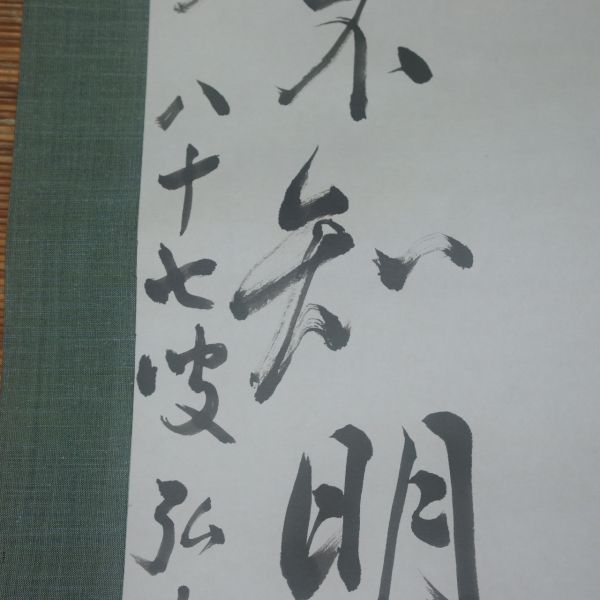 不知明
八十七叟弘